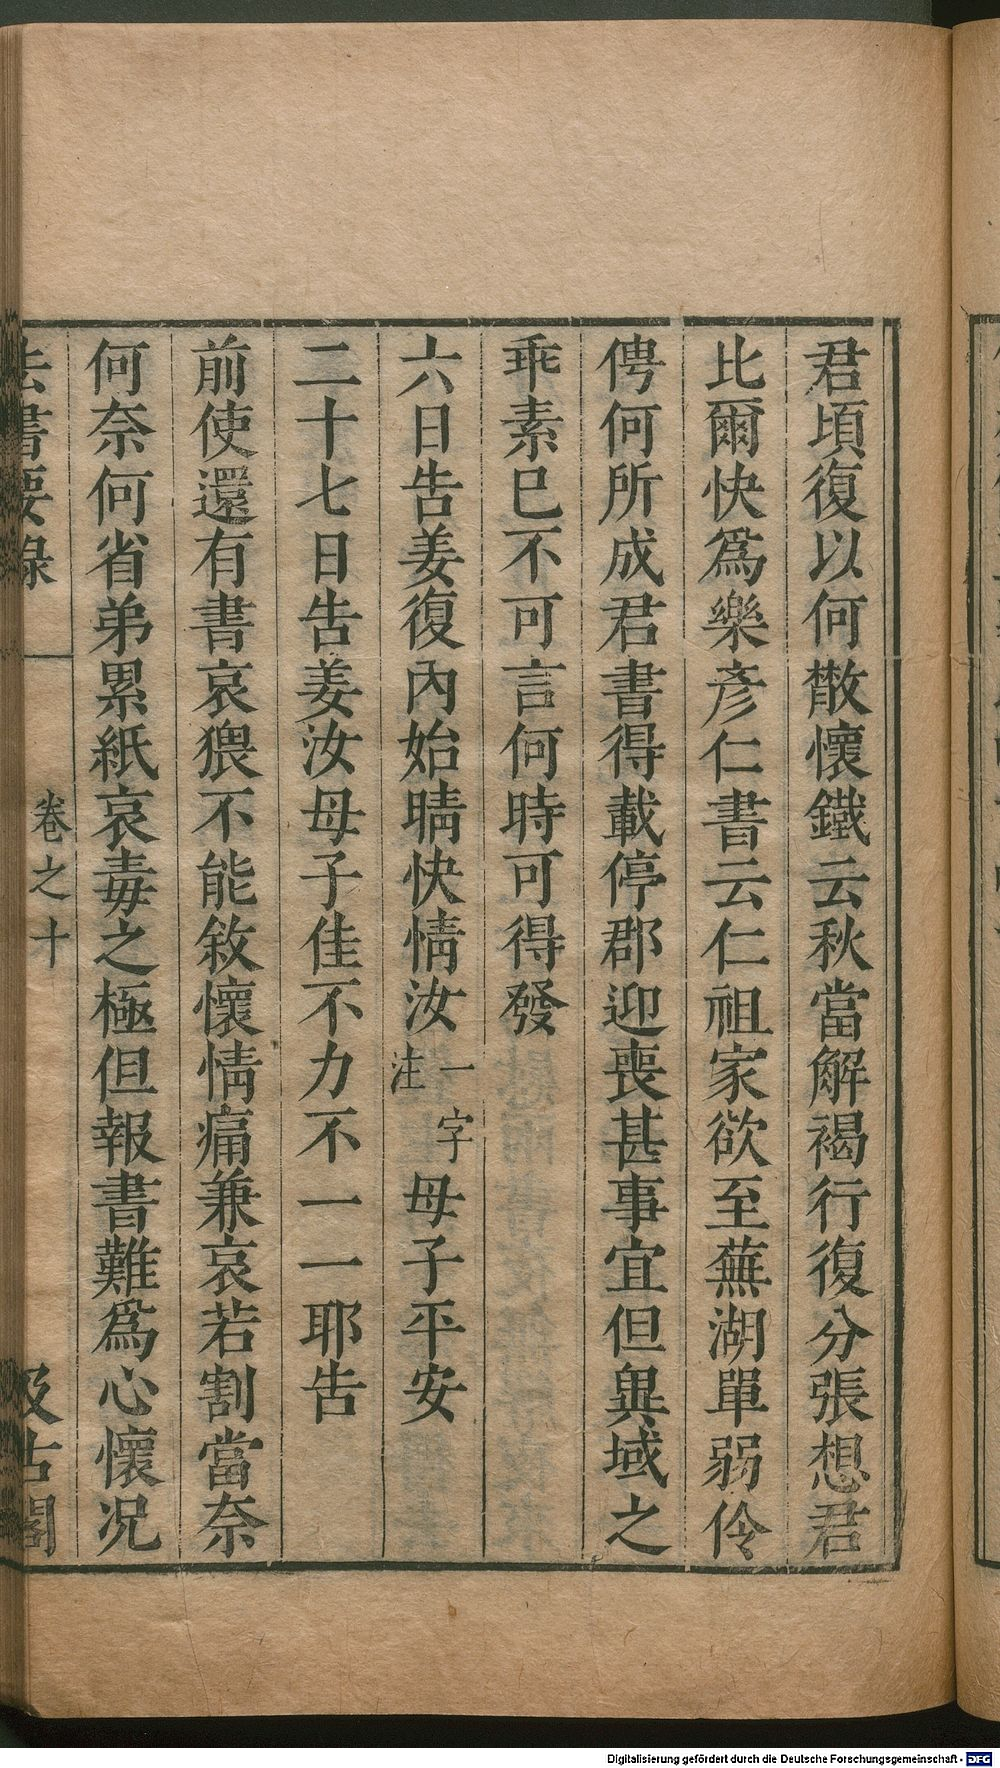 君頃復以何散懷鐵云秋當解褐行復分張想君
比爾快爲樂彦仁書云仁祖家欲至蕪湖單弱伶
俜何所成君書得載停郡迎喪甚事宜但異域之
乖素已不可言何時可得發
六日告姜復內始晴快情汝一字注母子平安
二十七日告姜汝母子佳不力不一一耶告
前使還有書哀猥不能敘懷情痛兼哀若割當奈
何奈何省弟累紙哀毒之極但報書難爲心懷况
法書要錄 卷之十 汲古閣
Digitalisierung gefördert durch die Deutsche Forschungsgemeinschaft - DFG